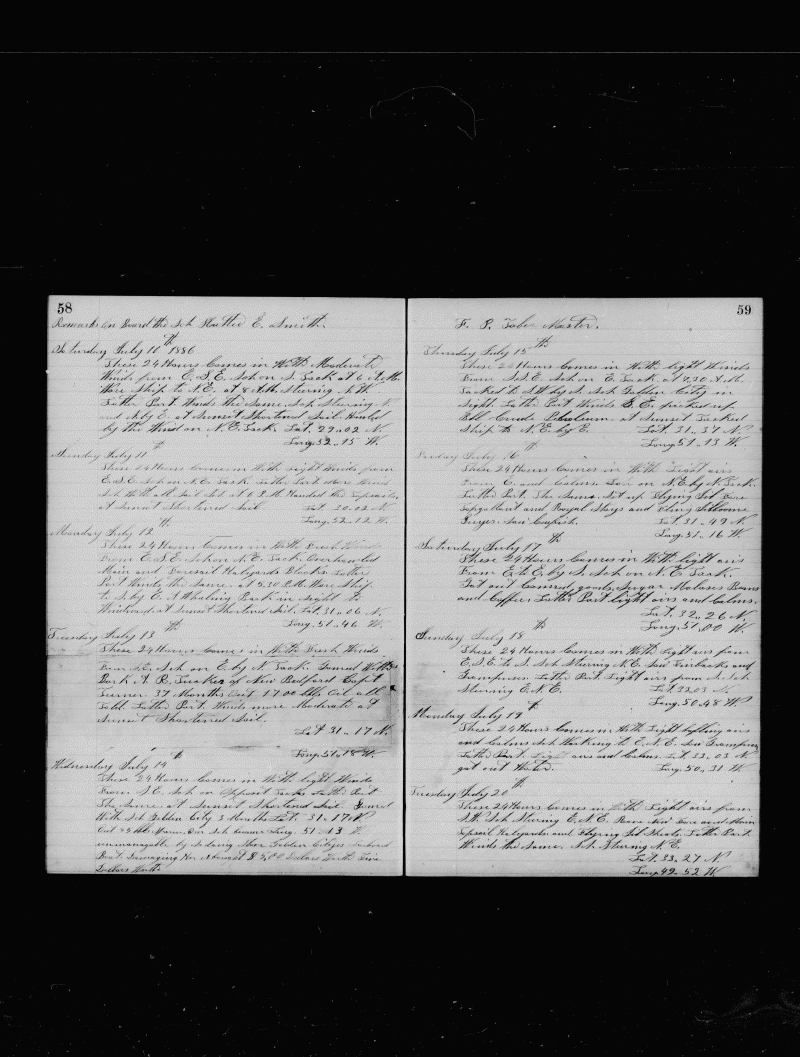 58
Remarks on Board the Sch Hattie E. Smith.
Saturday July 10th 1886
These 24 Hours Comes in With Moderate
Winds from E.S.E. Sch on S. Tack at 6 A.M.
Ware Ship to N.E. at 8 A.M. Steering N.W.
Latter Part Winds the Same. Sch Steering N
and N by E. at Sunset Shortend Sail. Hauled
by the Wind on N.E. Tack. Lat. 29..02 N.
Long. 52..15 W.
Sunday July 11th
These 24 Hours Comes in With light Winds from
E.S.E. Sch on N.E. Tack. Latter Part More Wind
Sch With all Sail Set at 6 P.M. Handed the Topsails.
at Sunset Shortend Sail. Lat 30..02 N.
Long. 52..12 W.
Monday July 12th
These 24 Hours Comes in With Fresh Winds
From E.S.E. Sch on N.E. Tack. Overhauled
Main and Foresail Halyards Blocks. Latter
Part Winds the Same. at 5.30 P.M. Ware Ship
to S. by E. A Whaling Bark in Sight to
Windward. at Sunset Shortend Sail. Lat. 31..06 N.
Long. 51..46 W.
Tuesday July 13th
These 24 Hours Comes in With Fresh Winds
From S.E. Sch on E. by N. Tack. Gamed With
Bark A. R. Tucker of New Bedford Capt
Turner. 37 Months Out 1700 bbls Oil all
told. Latter Part Winds more Moderate at
Sunset Shortend Sail.
Lat 31..17 N.
Long. 51..18 W.
Wednesday July 14th
These 24 Hours Comes in With light Winds
From S.E. Sch on Opposit Tacks. Latter Part
The Same. at Sunset Shortend Sail. Gamed
With Sch Golden City 3 Months Lat. 31..17 N
Out Our Sch became Long. 51..13 W
unmanagable by Golden Citys
Boat. Damaging Her Dolars Worth Five
Dollars Worth.
59
F. S. Taber Master.
Thursday July 15th
These 24 Hours Comes in With light Winds
From S.S.E. Sch on E. Tack. at 9.30 A.M.
Tacked to S.W. by S. Sch Golden City in
Sight. Latter Part Winds S.E. picked up
Crude Petroleum. at Sunset Tacked
Ship to N.E. by E. Lat. 31..37 N
Long 51..13 W
Friday July 16th
These 24 Hours Comes in With Light airs
From E. and Calms. Sch on N.E. by N Tack.
Latter Part The Same. Set up Flying Jib Fore
Topgallant and Royal Stays and Flying Jibboom
Guys. Saw Cowfish. Lat. 31..49 N
Long. 51..16 W
Saturday July 17th
These 24 Hours Comes in With light airs
From E. to E. by S. Sch on N.E. Tack.
Got out Canned goods, Sugar Molases Beans
and Coffee. Latter Part light airs and Calms.
Lat. 32..26 N
Long. 51..00 W.
Sunday July 18th
These 24 Hours Comes in With Light airs from
E.S.E. to S. Sch Steering N.E. Saw Finbacks and
Grampuses. Latter Part Light airs from S. Sch
Steering E.N.E. Lat 33..03 N
Long. 50..48 W
Monday July 19th
These 24 Hours Comes in With Light bafling airs
and Calms. Sch Working to E.N.E. Saw Grampuses
Latter Part Light airs and Calms. Lat. 33..03 N
got out Water. Long. 50..31 W.
Tuesday July 20th
These 24 Hours Comes in With Light airs from
S.W. Sch Steering E.N.E. Rove New Fore and Main
Topsail Halyards and Flying Jib Sheets. Latter Part
Winds the Same. Sch Steering N.E.
Lat. 33..27 N
Long. 49..52 W